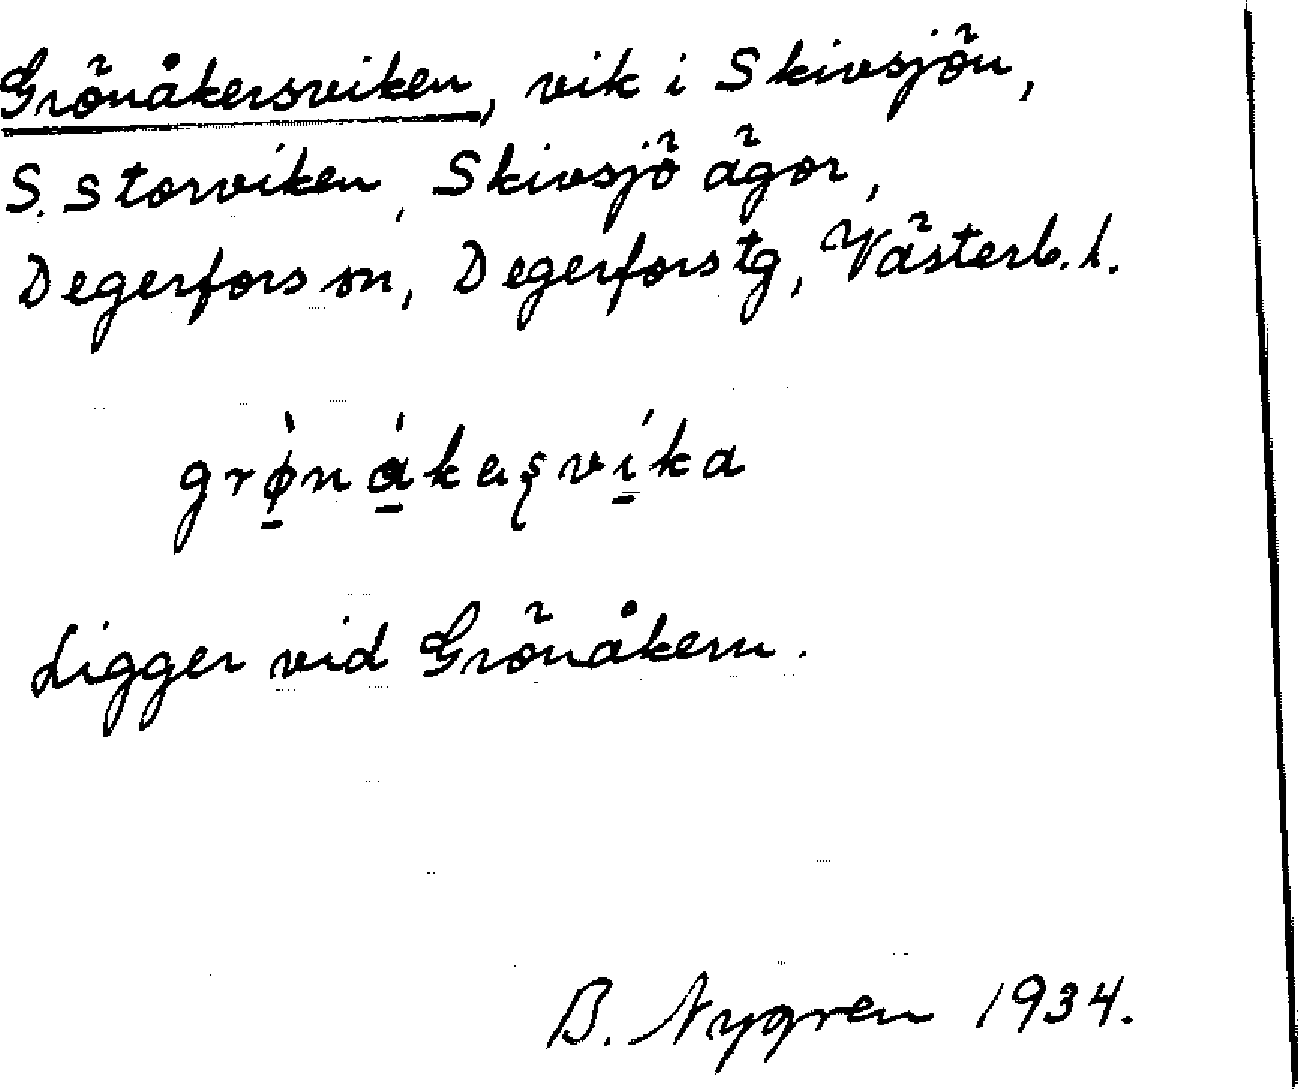 Grönåkersviken, vik i Skivsjön,
S. Storviken, Skivsjö ägor,
Degerfors sn, Degerfors tg, Västerb. l.
grø̱̀ná̱keʂví̱ka
Ligger vid Grönåkern.
B. Nygren 1934.